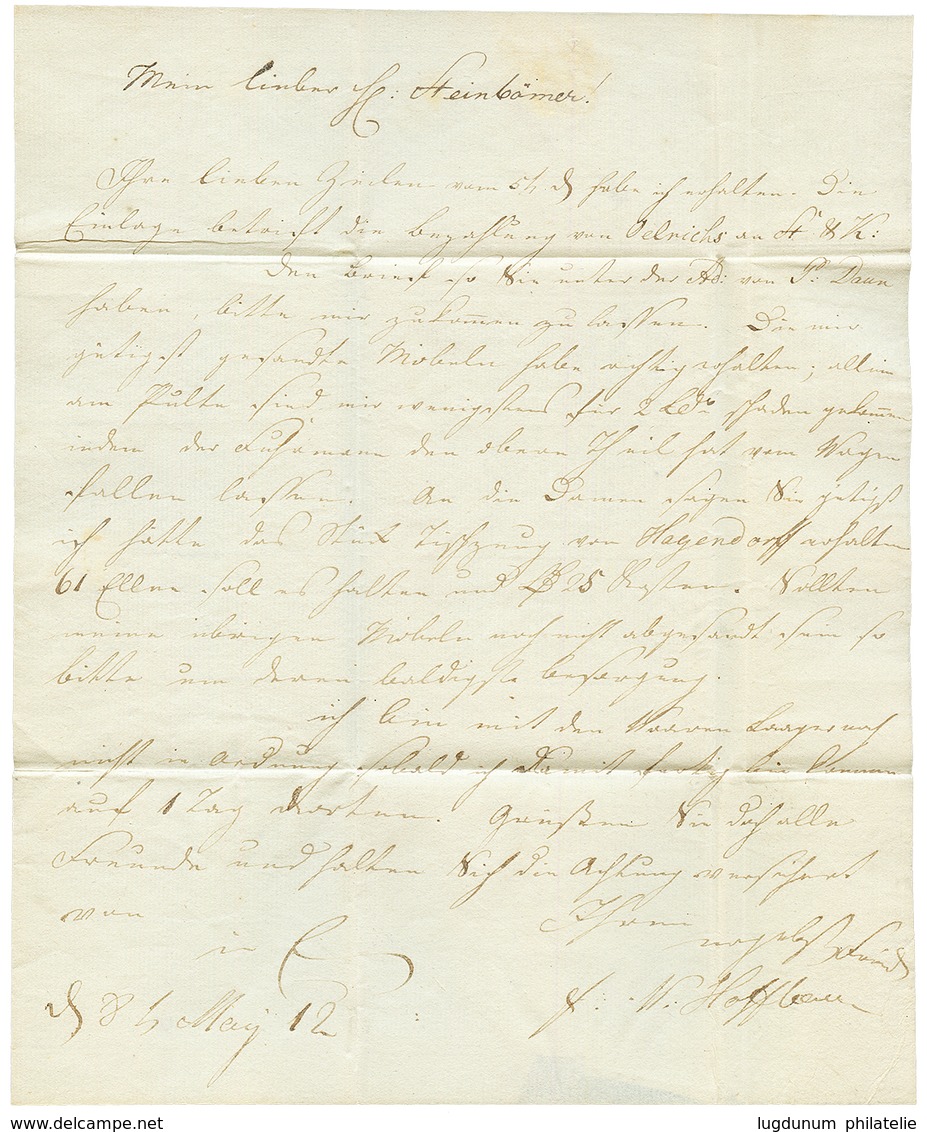 Mein lieber H: Steinbömer!
Ihre lieben Zeilen vom 5t d habe ich erhalten. Die
Einlage betrift die Bezahlung von Oelrichs an St & K:
Den Brief so Sie unter der Ad: von P: Daun
haben, bitte mir zukom̅en zu lassen. Die mir
gütigst gesandte Möbeln habe richtig erhalten; allein
am Pulte sind mir wenigstens für 2 Ldr schaden gekom̅en
indem der Fuhrmann den obern Theil hat vom Wagen
fallen lassen. An die Damen sagen Sie gütigst
ich hätte das Stück Tischzeug von Hagendorff erhalten
61 Ellen soll es halten und 25 kosten. Sollten
meine übrigen Möbeln noch nicht abgesandt sein so
bitte um deren baldigste besorgung.
ich bin mit den Waaren Laager noch
nicht in Ordnung sobald ich damit fertig bin komme
auf 1 Tag dorten. Grüßen Sie doch alle
Freunde und halten Sich die Achtung versichert
von Ihrem
in E ergebst Freund
d 8t May 12 f: W: Hoffbauer
lugdunum philatelie
www.delcampe.net